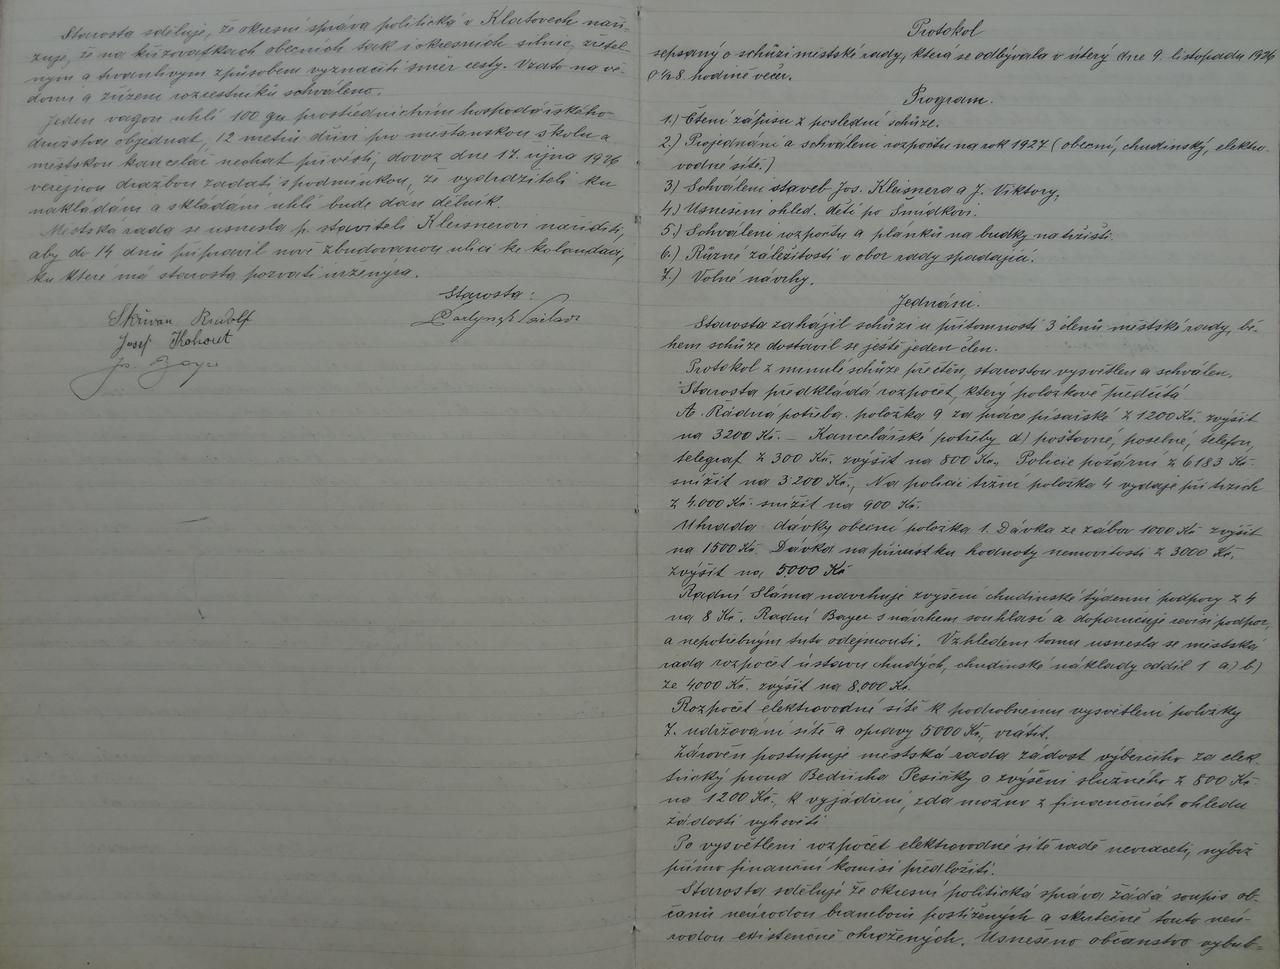 Starosta sděluje, že okresní správa politická v Klatovech naři-
zuje, že na křižovatkách obecních tak i okresních silnic, zřetel-
ným a trvanlivým způsobem vyznačiti směr cesty. Vzato na vě-
domí a zřízení rozcestníků schváleno.
Jeden vagon uhlí 100 qu prostřednictvím hospodářského
družstva objednat, 12 metrů dříví pro měšťanskou školu a
městskou kancelář nechat přivésti, dovoz dne 17. října 1926
veřejnou dražbou zadati s podmínkou, že vydražiteli ku
nakládání a skládání uhlí bude dán dělník.
Městská rada se usnesla p. staviteli Kleisnerovi naříditi,
aby do 14 dnů připravil nově zbudovanou ulici ke kolaudaci,
ku které má starosta pozvati inženýra.
Starosta:
Skřivan Rudolf
Josef Kohout
Jos. Bayer
Protokol
sepsaný o schůzi městské rady, která se odbývala v úterý dne 9. listopadu 1926
o ½8. hodině večer.
Program.
1.) Čtení zápisu z poslední schůze.
2.) Projednání a schválení rozpočtu na rok 1927 (obecní, chudinský, elektro-
vodné sítě.)
3.) Schválení staveb Jos. Kleisnera a J. Viktory,
4.) Usnešení ohled. dětí po Šmídkovi.
5.) Schválení rozpočtu a plánků na budky na tržišti.
6.) Různé záležitosti v obor rady spadající.
7.) Volné návrhy.
Jednání.
Starosta zahájil schůzi u přítomnosti 3 členů městské rady, bě-
hem schůze dostavil se ještě jeden člen.
Protokol z minulé schůze přečtěn, starostou vysvětlen a schválen.
Starosta předkládá rozpočet, který položkově předčítá
A. Řádná potřeba. položka 9 za práce písařské z 1200 Kč. zvýšit
na 3200 Kč. – Kancelářské potřeby d) poštovné, poselné, telefon,
telegraf z 300 Kč. zvýšit na 800 Kč., Policie požární z 6183 Kč.
snížit na 3.200 Kč., Na policii tržní položka 4 vydaje při trzích
z 4.000 Kč. snížit na 900 Kč.
Uhrada dávky obecní položka 1. Dávka ze zábav 1000 Kč zvýšit
na 1500 Kč. Dávka na přírustku hodnoty nemovitosti z 3000 Kč,
zvýšit na 5000 Kč
Radní Sláma navrhuje zvyšení chudinské týdenní podpory z 4
na 8 Kč. Radní Bayer s návrhem souhlasí a doporučuje revisi podpor,
a nepotřebným tuto odejmouti. Vzhledem tomu usnesla se městská
rada rozpočet ústavu chudých, chudinské náklady oddíl 1 a) b)
ze 4000 Kč. zvýšit na 8.000 Kč.
Rozpočet elektrovodní sítě k podrobnému vysvětlení položky
7. udržování sítě a opravy 5000 Kč, vrátit.
Zároveň postupuje městská rada žádost výběrčího za elek-
trický proud Bedřicha Pesičky o zvýšení služného z 800 Kč.
na 1200 Kč., k vyjádření, zda možno z finančních ohledů
žádosti vyhověti
Po vysvětlení rozpočet elektrovodné sítě radě nevraceti, nýbrž
přímo finanční komisi předložiti.
Starosta sděluje že okresní politická správa žádá soupis ob-
čanů neúrodou bramborů postižených a skutečně touto neú-
rodou existenčně ohrožených. Usnešeno občanstvo vybub=